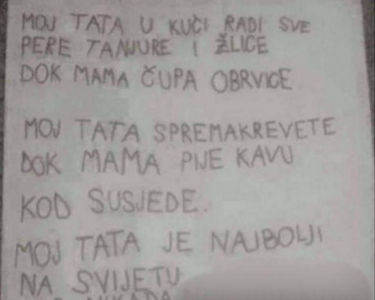 MOJ TATA U KUĆI RADI SVE
PERE TANJURE I ŽLICE
DOK MAMA ČUPA OBRVICE
MOJ TATA SPREMAKREVETE
DOK MAMA PIJE KAVU
KOD SUSJEDE.
MOJ TATA JE NAJBOLJI
NA SVIJETU
NIKADA